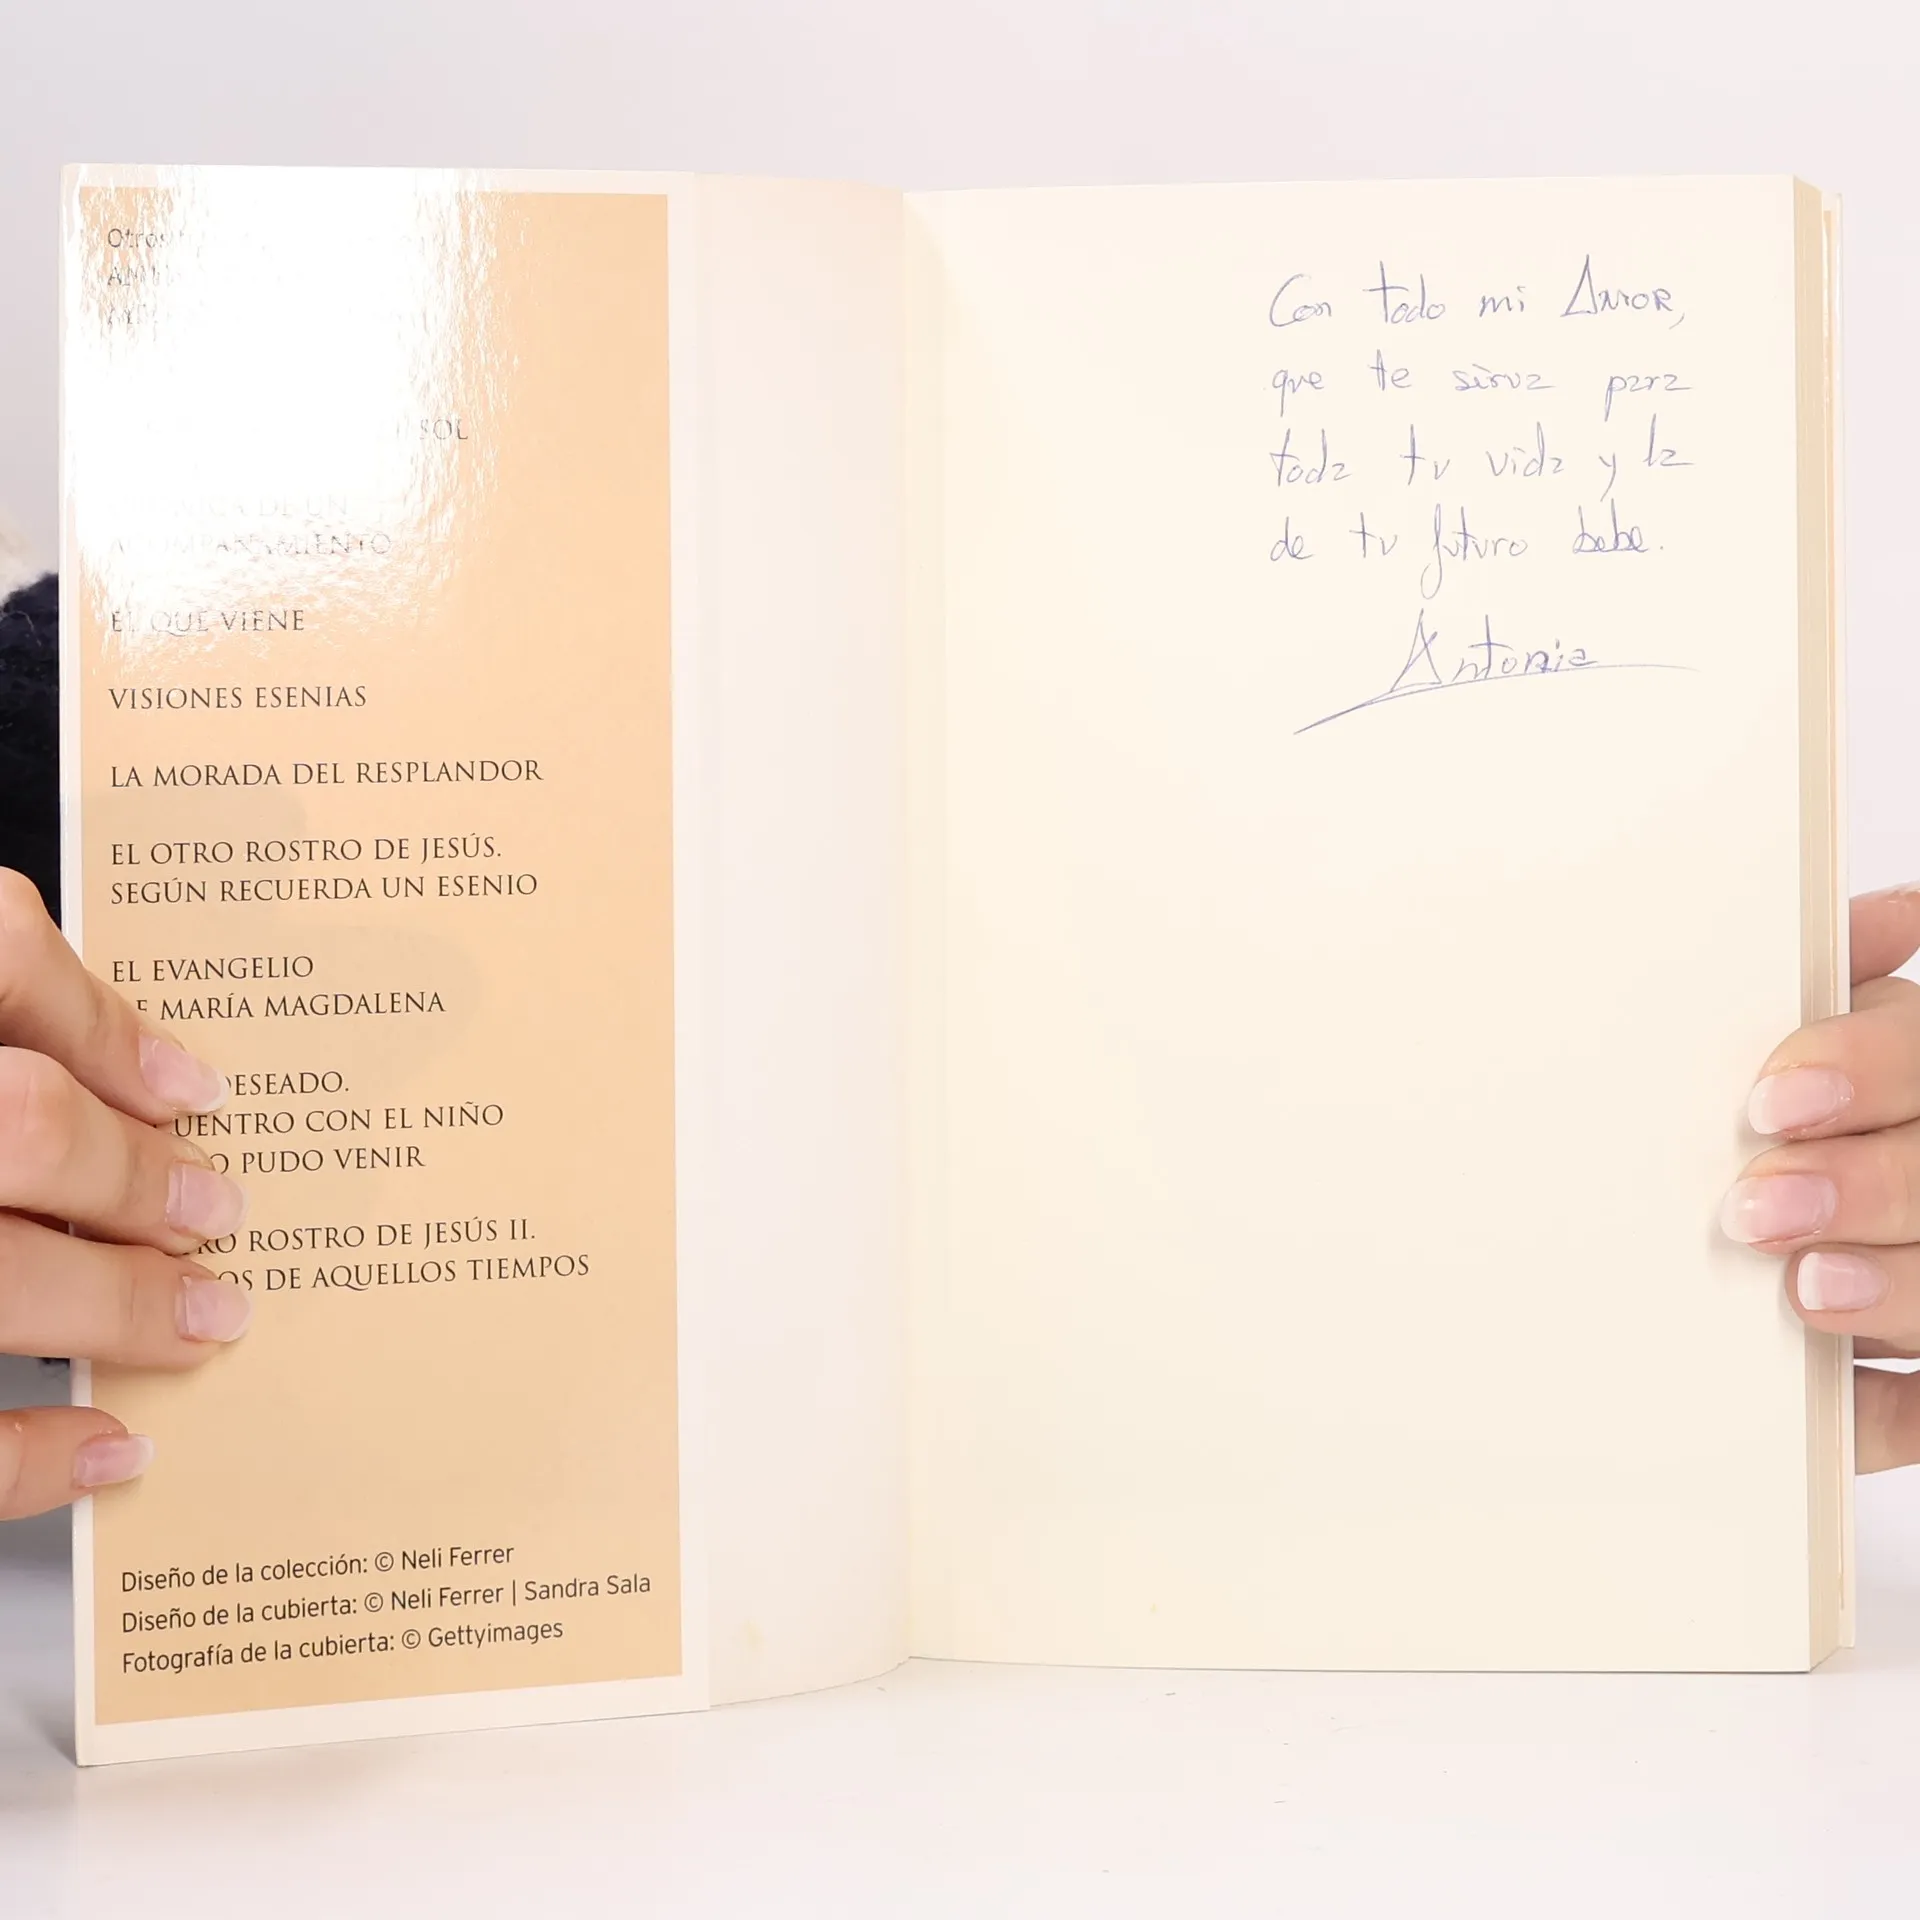 Otros
SOL
DE UN
ACOMPAÑAMIENTO
EL QUE VIENE
VISIONES ESENIAS
LA MORADA DEL RESPLANDOR
EL OTRO ROSTRO DE JESÚS.
SEGÚN RECUERDA UN ESENIO
EL EVANGELIO
MARÍA MAGDALENA
CON EL NIÑO
PUDO VENIR
ROSTRO DE JESÚS II.
DE AQUELLOS TIEMPOS
Diseño de la colección: © Neli Ferrer
Diseño de la cubierta: © Neli Ferrer | Sandra Sala
Fotografía de la cubierta: © Gettyimages
Con todo mi AmoR,
que te sirva para
toda tu vida y la
de tu futuro bebe.
Antonia